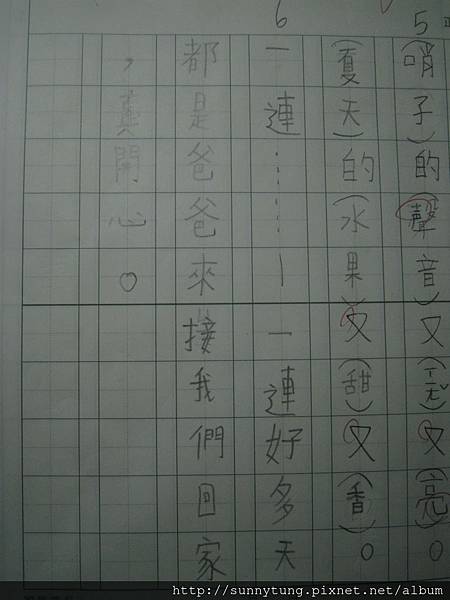 5 (哨子)的(聲音)又(ㄒㄧㄤˇ)又(亮)。
(夏天)的(水果)又(甜)又(香)。
6 一連……—一連好多天
都是爸爸來接我們回家
，真開心。
http://sunnytung.pixnet.net/album